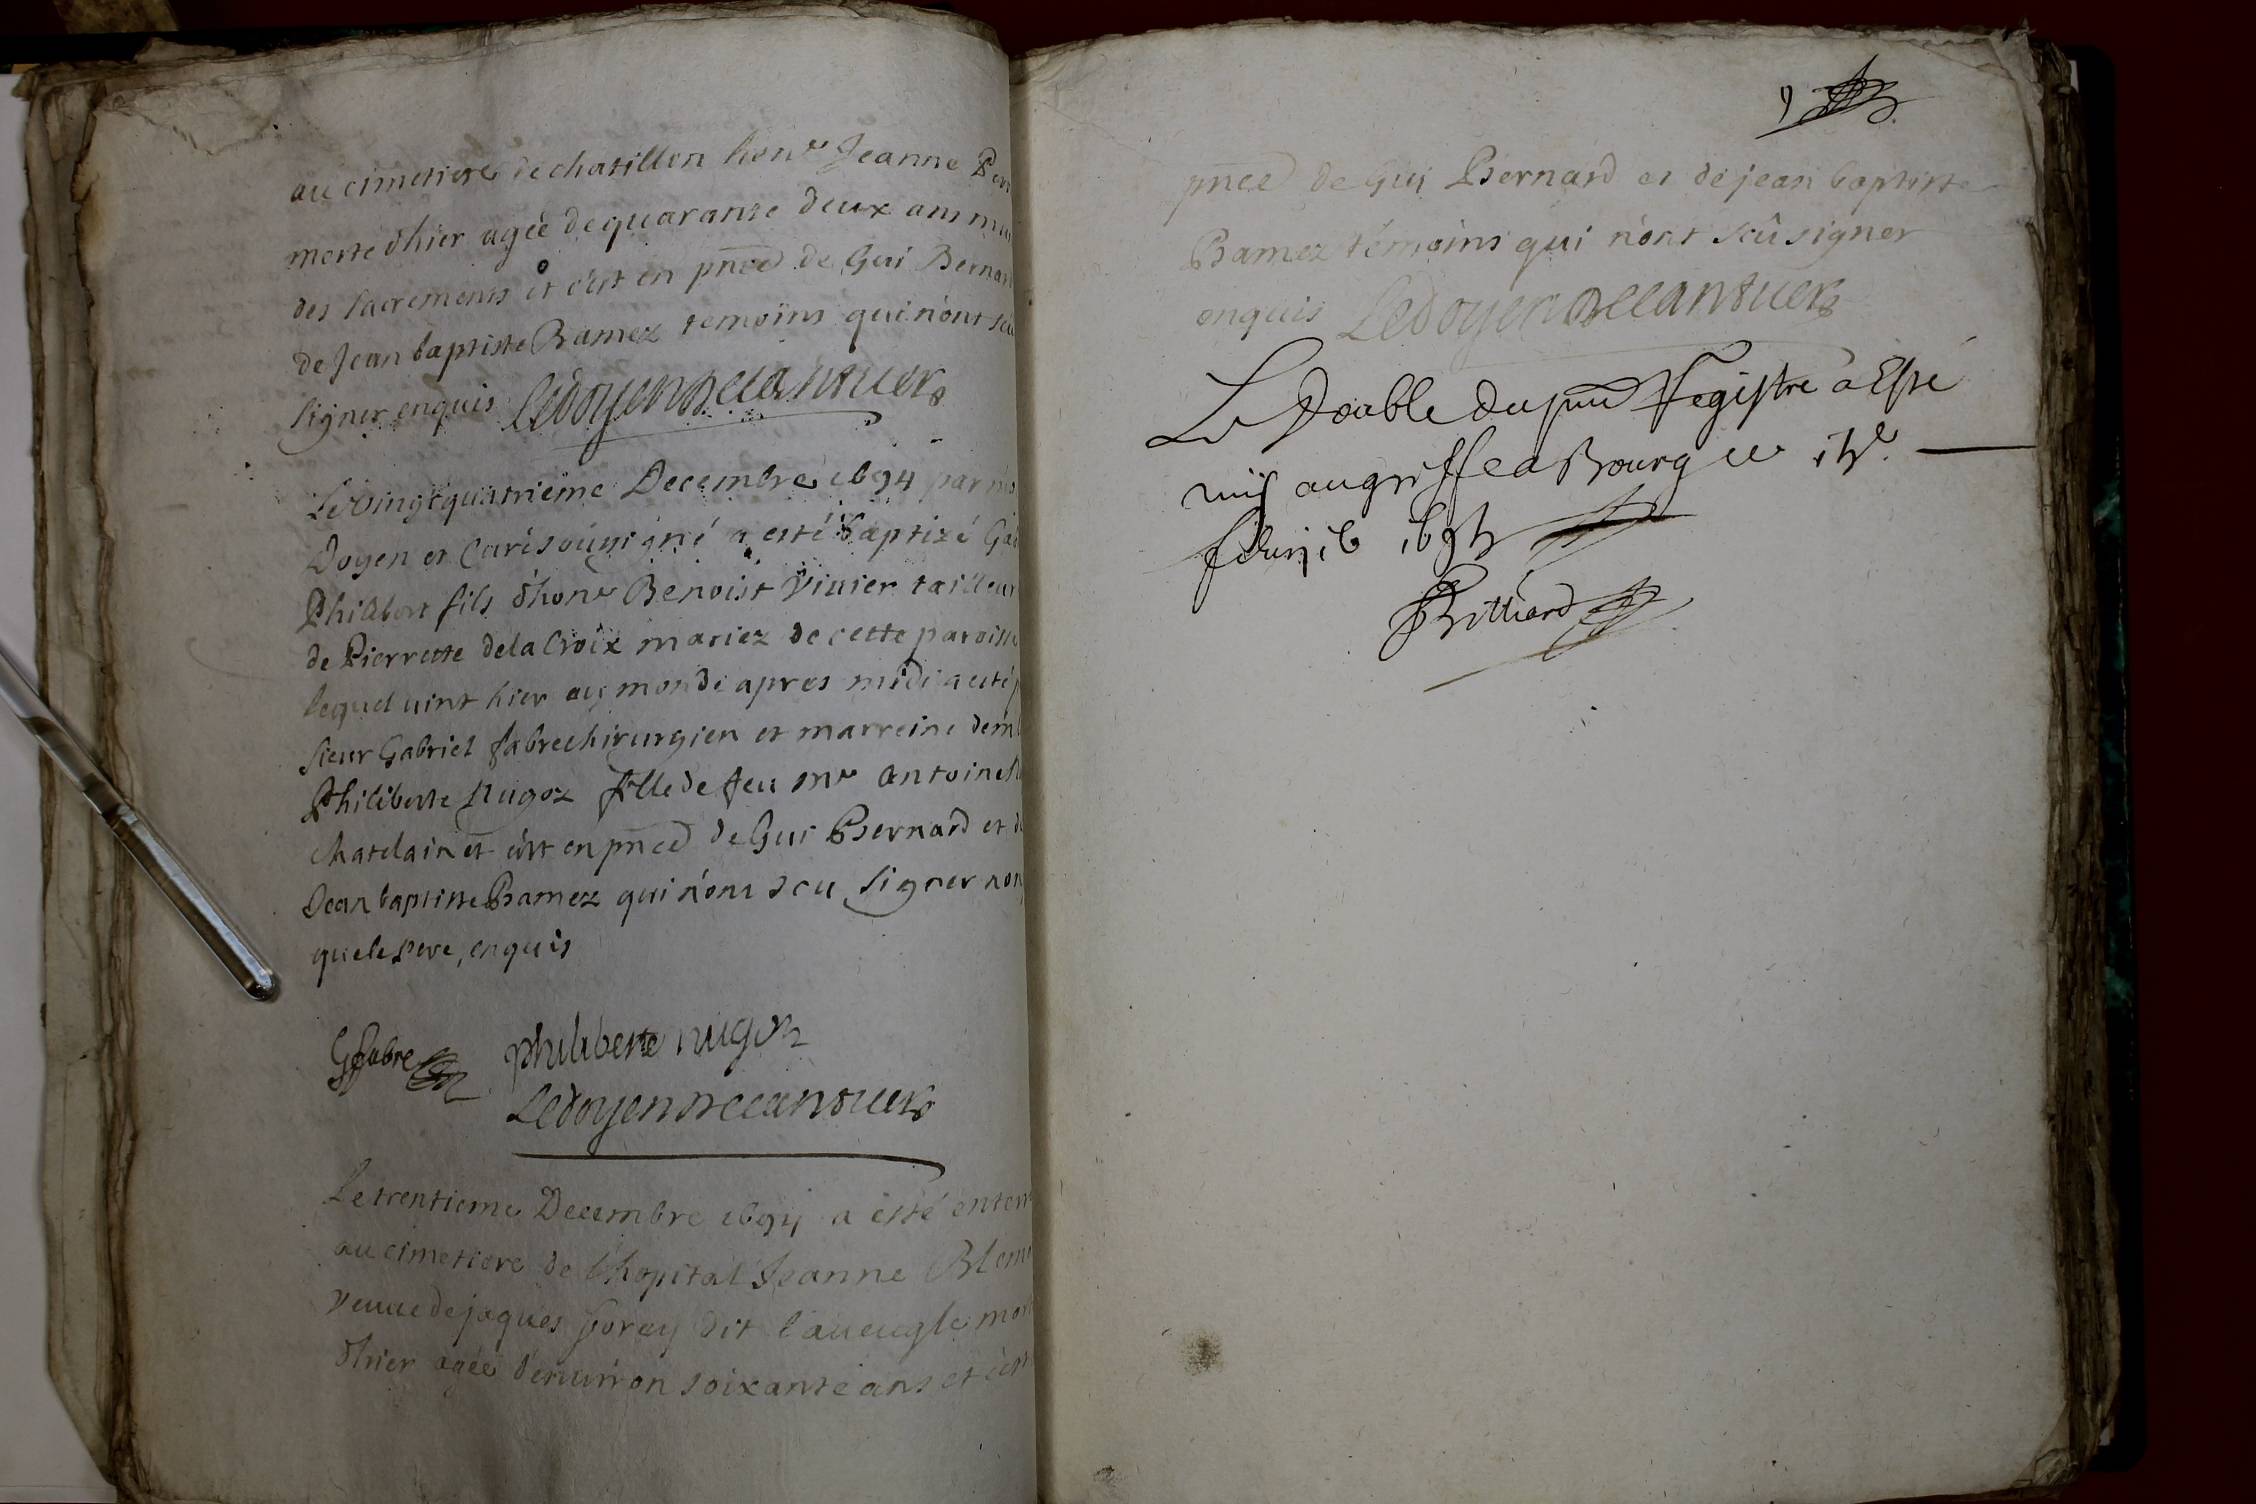 au cimetiere de chatillon hon.e Jeanne
morte d'hier agée de quarante deux ans
des sacrements et c'est en pnce de Gui Bernard
de Jean baptiste Bamez temoins qui n'ont sçu
signer enquis Ledoyen
Le vingt quatrieme Decembre 1694 par
Doyen et Curé sousigné a esté baptizé
Philibert fils d'hon.e Benoist Vivier tailleur
de Pierrette dela Croix mariez de cette paroisse
lequel vint hier au monde apres midi a esté
sieur Gabriel fabre chirurgien et marreine
Philiberte Nugoz fille de feu mr Antoine
chatelain et c'est en pnce de Gui Bernard et de
Jean baptiste Bamez qui n'ont sceu signer non
que le pere, enquis
G fabre philiberte nugoz
Ledoyen
Le trentieme Decembre 1694 a esté
au cimetiere de l'hopital Jeanne
veuve de jaques dit l'aveugle
d'hier agée d'environ soixante ans et c'est
9
pnce de Gui Bernard et de jean baptiste
Bamez témoins qui n'ont sçû signer
enquis Ledoyen
Le Double du pnt Registre a Esté
mis au griffe a Bourg ce
Billiard